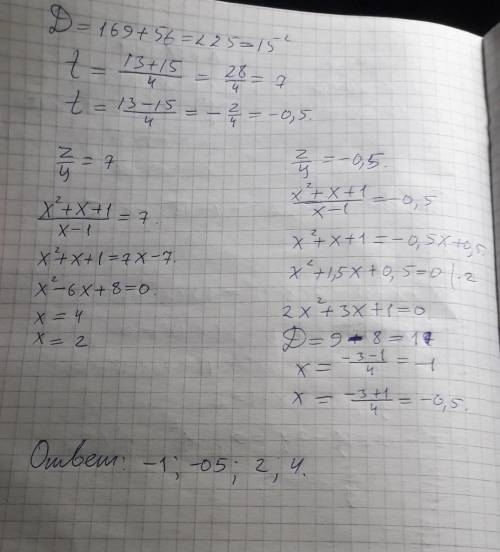 D = 169 + 56 = 225 = 15²
t = (13+15)/4 = 28/4 = 7
t = (13-15)/4 = -2/4 = -0,5.
z/y = 7
(x²+x+1)/(x-1) = 7.
x²+x+1 = 7x-7.
x²-6x+8=0.
x = 4
x = 2
z/y = -0,5.
(x²+x+1)/(x-1) = -0,5
x²+x+1 = -0,5x+0,5.
x²+1,5x+0,5=0 |·2
2x²+3x+1=0
D = 9-8=1
x = (-3-1)/4 = -1
x = (-3+1)/4 = -0,5.
Ответ: -1; -05; 2, 4.